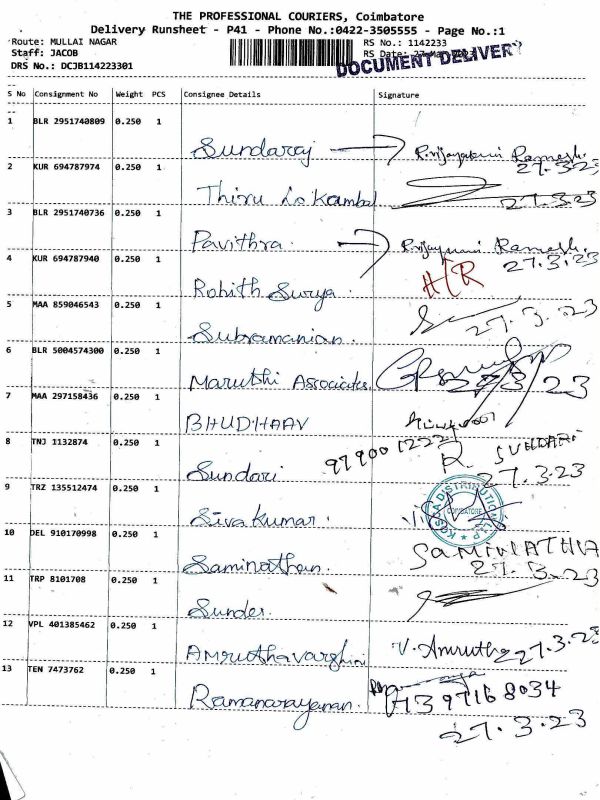 THE PROFESSIONAL COURIERS, Coimbatore
Delivery Runsheet - P41 - Phone No.:0422-3505555 - Page No.:1
Route: MULLAI NAGAR
RS No.: 1142233
Staff: JACOB
RS Date: 27-Mar-2023
DRS No.: DCJB114223301
DOCUMENT DELIVERY
S No Consignment No Weight PCS Consignee Details Signature
1 BLR 2951740809 0.250 1
Sundaraj R.vijayakumi Ramesh.
27.3.23
2 KUR 694787974 0.250 1
Thiru
27.3.23
3 BLR 2951740736 0.250 1
Pavithra. Ramesh.
27.3.23
4 KUR 694787940 0.250 1
Rohith Surya. H/R
5 MAA 859046543 0.250 1
Subramanian. 27.3.23
6 BLR 5004574300 0.250 1
Maruthi Associates. 27/3/23
7 MAA 297158436 0.250 1
BHUDHAAV
8 TNJ 1132874 0.250 1
Sundari R. SUNDARI
27.3.23
9 TRZ 135512474 0.250 1
Sivakumar. COIMBATORE
10 DEL 910170998 0.250 1
Saminathan. SAMINATHA
27.3.23
11 TRP 8101708 0.250 1
Sunder.
12 VPL 401385462 0.250 1
Amruthavarghini V. Amrutha 27.3.23
13 TEN 7473762 0.250 1
Ramanarayanan. 27.3.23